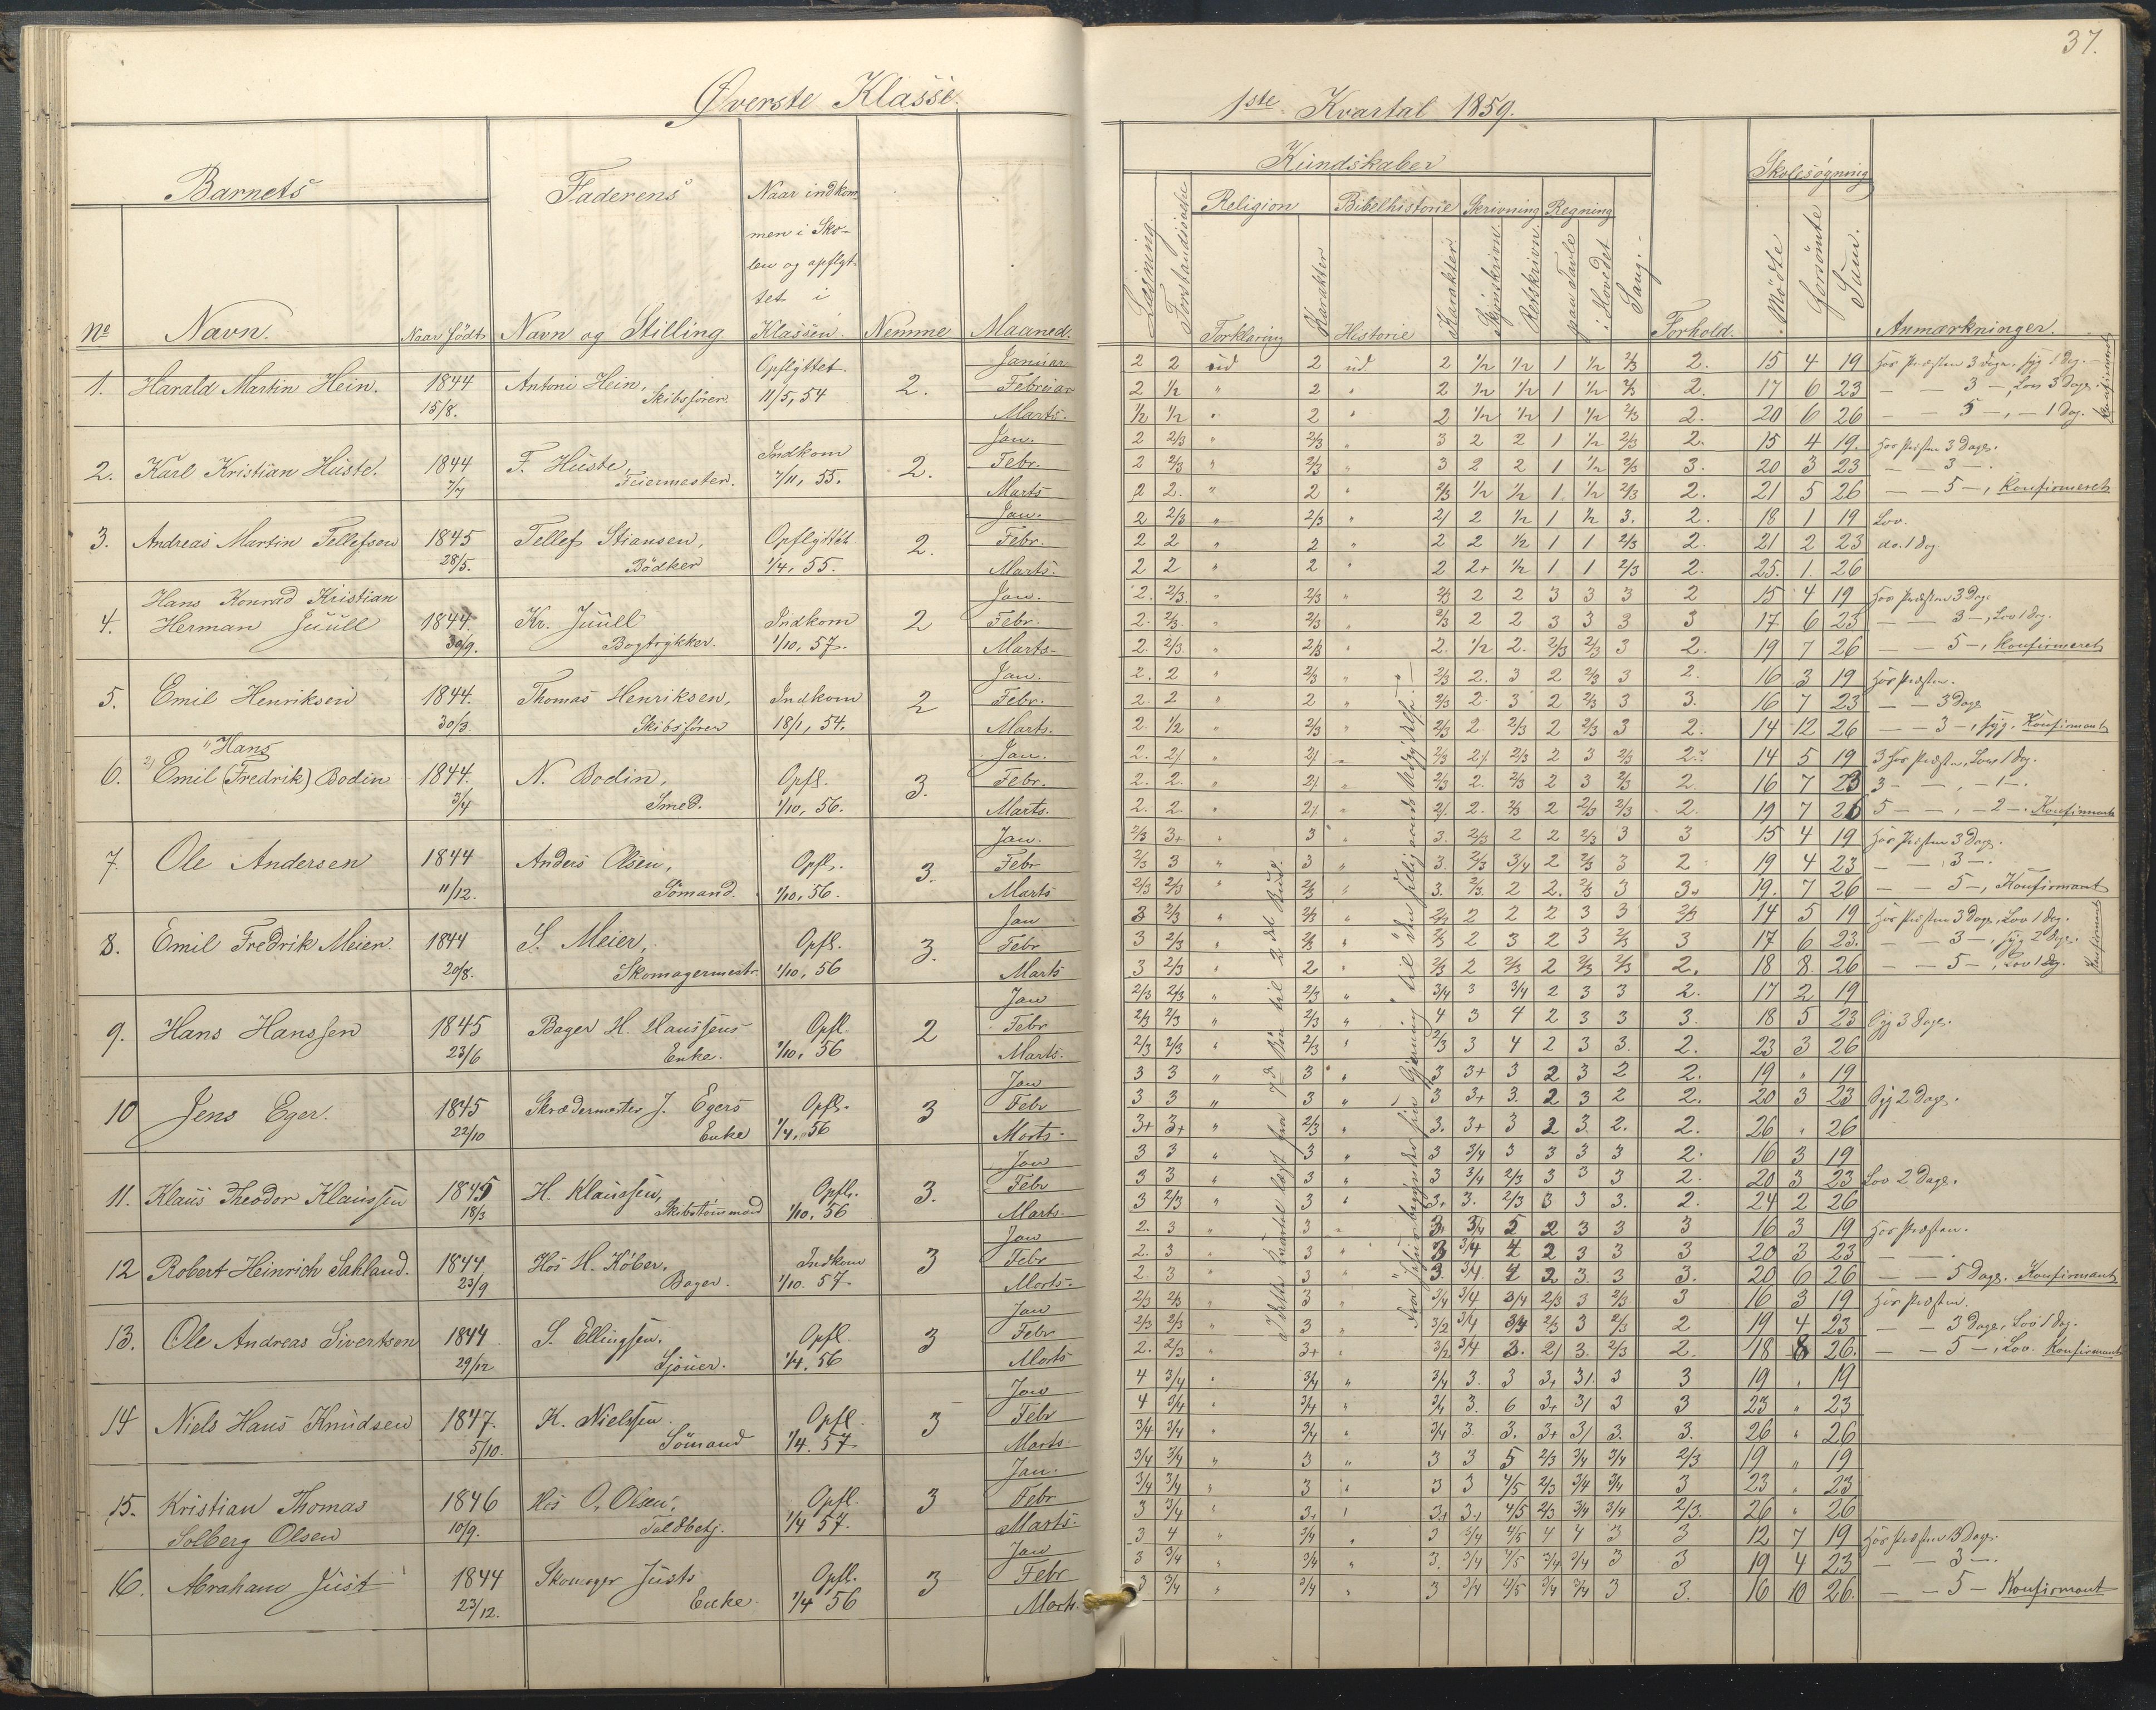 37.
Øverste Klasse.
1ste Kvartal 1859.
Barnets
Faderens
Naar indkom
men i Sko-
len og opflyt-
tet i
Klassen.
Kundskaber
Skolesøgning
Religion Bibelhistorie Skrivning Regning
No Navn. Naar født Navn og Stilling. Nemme Maaned.
Læsning. Forstandsøvelse Forklaring Karakter Historie Karakter Skjønskrivn. Retskrivn. paa Tavle i Hovedet Sang. Forhold. Mødte Forsømte Sum. Anmærkninger.
Opflyttet Januar 2 2 ud 2 ud 2 1/2 1/2 1 1/2 2/3 2. 15 4 19 hos Præsten 3 Dage, syg 1 Dag.
1. Harald Martin Hein. 1844 Antoni Hein, 11/5, 54 2. Februar 2 1/2 " 2 " 2 1/2 1/2 1 1/2 2/3 2. 17 6 23 — — 3 —, Lov 3 Dage. Konfirmeret
15/8. Skibsfører Marts. 1/2 1/2 " 2 " 2 1/2 1/2 1 1/2 2/3 2. 20 6 26 — — 5 —, — 1 Dag.
Indkom Jan. 2 2/3 " 2/3 " 3 2 2 1 1/2 2/3 2. 15 4 19. hos Præsten 3 Dage.
2. Karl Kristian Huste. 1844 F. Huste, 7/11, 55. 2. Febr. 2 2/3 " 2/3 " 3 2 2 1 1/2 2/3 3. 20 3 23 — — 3 —.
7/7 Feiermester. Marts 2 2. " 2 " 2/3 1/2 1/2 1. 1/2 2/3 2. 21 5 26 — — 5 —, Konfirmeret
Jan. 2 2/3 " 2/3 " 2/ 2 1/2 1 1/2 3. 2. 18 1 19 Lov.
3. Andreas Martin Tellefsen 1845 Tellef Stiansen, Opflyttet 2. Febr. 2 2 " 2 " 2 2 1/2 1 1 2/3 2. 21 2 23 do. 1 Dag
28/5. Bødker 1/4, 55. Marts. 2 2 " 2 " 2 2+ 1/2 1 1 2/3 2. 25. 1. 26
Hans Konrad Kristian Jan. 2. 2/3. " 2/3 " 2/3 2 2 3 3 3 2 15 4 19 hos Præsten 3 Dage
4. Herman Juull 1844. Kr. Juull Indkom 2 Febr. 2. 2/3. " 2/3 " 2/3 2 2 3 3 3 3 17 6 23 — — 3 —, Lov 1 Dag.
30/9. Bogtrykker. 1/10, 57. Marts 2 2/3. " 2/3 " 2. 1/2 2. 2/3 2/3 3 2. 19 7 26 — — 5 —, Konfirmeret
Jan. 2. 2 " 2/3 " 2/3 2. 3 2 2/3 3 2. 16 3 19 hos Præsten.
5. Emil Henriksen 1844. Thomas Henriksen, Indkom 2 Febr. 2. 2 " 2 " 2/3 2. 3 2 2/3 3 3. 16 7 23 — — 3 Dage
30/3. Skibsfører 18/1, 54. Marts. 2. 1/2 " 2/3 " 2/3 2. 2/3 2 2/3 3 2. 14 12 26 — — 3 —, syg. Konfirmant
Hans Jan. 2. 2/. " 2/. " 2/3 2/. 2/3 2 3 2/3 2. 14 5 19 3 hos Præsten, Lov 1 Dag.
6. Emil (Fredrik) Bodin 1844. N. Bodin, Opfl. 3. Febr. 2. 2. " 2/. " 2/3 2. 2/3 2 3 2/3 2. 16 7 23 3 — —, — 1 —.
3/4 Smed. 1/10, 56. Marts. 2. 2. " 2/. " 2/. 2. 2/3 2 2/3 2/3 2. 19 7 26 5 — —, — 2 —. Konfirmant
Jan. 2/3 3+ " 3 " 3. 2/3 2 2 2/3 3 3 15 4 19 hos Præsten 3 Dage.
7. Ole Andersen 1844 Anders Olsen, Opfl. 3. Febr 2/3 3 " 3 " 3. 2/3 3/4 2 2/3 3 2 19 4 23 — — 3 —.
11/12. Sømand. 1/10, 56. Marts 2/3 2/3 " 2/3 " 3. 2/3. 2 2. 2/3 3 3+ 19. 7 26 — — 5 —, Konfirmant
Jan 3 2/3 " 2/3 " 2/3 2 2 2 3 3 2/3 14 5 19 hos Præsten 3 Dage, Lov 1 Dag.
8. Emil Fredrik Meier. 1844 S. Meier, Opfl. 3. Febr 3 2/3 " 2/3 " 2/3 2 3 2 3 2/3 3 17 6 23. — — 3 —, syg 2 Dage. Konfirmant
20/8. Skomagermestr. 1/10, 56 Marts 3 2/3 " 2 " 2/3 2 2/3 2 2/3 2/3 2. 18 8. 26 — — 5 —, Lov 1 Dag.
Jan 2/3 2/3 " 2/3 " 3/4 3 3/4 2 3 3 2. 17 2 19
9. Hans Hanssen 1845 Bager H. Hanssens Opfl. 2 Febr 2/3 2/3 " 2/3 " 4 3 4 2 3 3 3. 18 5 23 Syg 3 Dage.
23/6 Enke. 1/10, 56 Marts. 2/3 2/3 " 2/3 " 2/3 3 4 2 3 3. 2. 23 3 26
Jan 3 3 " 3 " 3 3+ 3 2 3 2 2. 19 " 19
10 Jens Eger. 1845 Skrædermester J. Egers Opfl. 3 Febr 3 3 " 3 " 3 3+ 3. 2 3 2 2. 20 3 23 Syg 2 Dage.
22/10 Enke 1/4, 56 Marts. 3+ 3+ " 2/3 " 3. 3+ 3 2 3. 2. 2. 26 " 26
Jan 3 3 " 3 " 3 3/4 3 3 3 3 2. 16 3 19
11. Klaus Theodor Klaussen 1845 H. Klaussen, Opfl. 3. Febr 3 3 " 3 " 3 3/4 2/3 3 3 3 2. 20 3 23 Lov 2 Dage.
18/3 Skibstømmand 1/10, 56 Marts. 3 2/3 " 3 " 3+ 3. 2/3 3 3 3. 2. 24 2 26
Jan 2. 3 " 3 " 3. 3/4 5 2 3 3 3 16 3 19 hos Præsten.
12 Robert Heinrich Sahland. 1844 Hos H. Køber, Indkom 3 Febr 2. 3 " 3 " 3 3/4 4 2 3 3 3 20 3 23 — — .
23/9 Bager. 1/10. 57. Marts. 2. 3 " 3 " 3. 3/4. 4 2 3. 3 3. 20 6 26 — — 5 Dage. Konfirmant
Jan 2/3 2/3 " 3 " 3/4 3/4 3/4 2/3 3 2/3 3 16 3 19 hos Præsten.
13. Ole Andreas Sivertsen 1844 S. Ellingsen. Opfl. 3 Febr 2/3 2/3 " 3 " 3/2 3/4 3/4 2/3 3 2/3 2 19 4 23 — — 3 Dage, Lov 1 Dag.
29/12 Sjouer. 1/4. 56 Marts 2. 2/3 " 3+ " 3/2 3/4 3. 2/ 3. 2/3 2. 18 8 26. — — 5 —, Lov. Konfirmant
Jan 4 3/4 " 3/4 " 3/4 3. 3 3+ 3/. 3 3 19 " 19
14 Niels Hans Knudsen 1847. K. Nielsen. Opfl. 3 Febr 4 3/4 " 3/4 " 3/4 3. 6 3+ 3/ 3 3 23 " 23
5/10. Sømand 1/4. 57 Marts 3/4 3/4 " 3/4 " 3/4 3. 3. 3+ 3/ 3. 3. 26 " 26
Jan. 3/4 3/4 " 3 " 3 3 5 2/3 3/4 3/4 2/3 19 " 19
15. Kristian Thomas 1846 Hos O. Olsen, Opfl. 3 Febr 3/4 3/4 " 3 " 3 3 4/5 2/3 3/4 3/4 3 23 " 23
Solberg Olsen 10/9. Toldbetj. 1/4 57. Marts. 3 3/4 " 3+ " 3+ 3+ 4/5 2/3 3/4 3/4 2/3. 26 " 26
Jan 3 4 " 3/4 " 3 3/4 4/5 4 4 3 3 12 7 19 hos Præsten 3 Dage.
16. Abraham Just 1844 Skomager Justs Opfl. 3 Febr 3 3/4 " 3/4 " 3. 3/4 4/5 3/4 3/4 3 3 19 4 23 — — 3 —.
23/12. Enke. 1/4 56 Marts. 3 3/4 " 3/4 " 3 3/4 4/5 3/4 3/4 3 3. 16 10 26. — — 5 — Konfirmant
I dette Kvartal læst fra 7de Bøn til 2det Bud.
Fra Jesus begynder sin Gjerning til